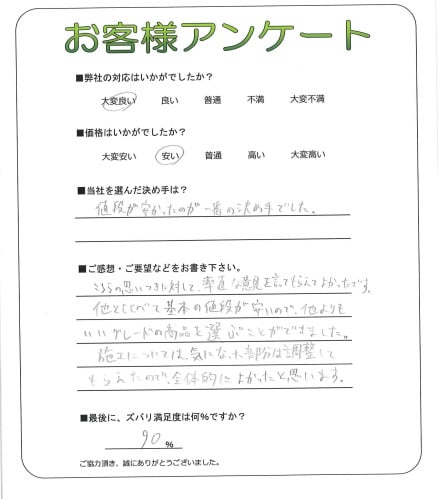 お客様アンケート
■弊社の対応はいかがでしたか？
大変良い 良い 普通 不満 大変不満
■価格はいかがでしたか？
大変安い 安い 普通 高い 大変高い
■当社を選んだ決め手は？
値段が安かったのが一番の決め手でした。
■ご感想・ご要望などをお書き下さい。
こちらの思いつきに対して、率直な意見を言ってもらえてよかったです。
他とくらべて基本の値段が安いので、他よりも
いいグレードの商品を選ぶことができました。
施工については、気になった部分は調整して
もらえたので、全体的によかったと思います。
■最後に、ズバリ満足度は何％ですか？
90 ％
ご協力頂き、誠にありがとうございました。